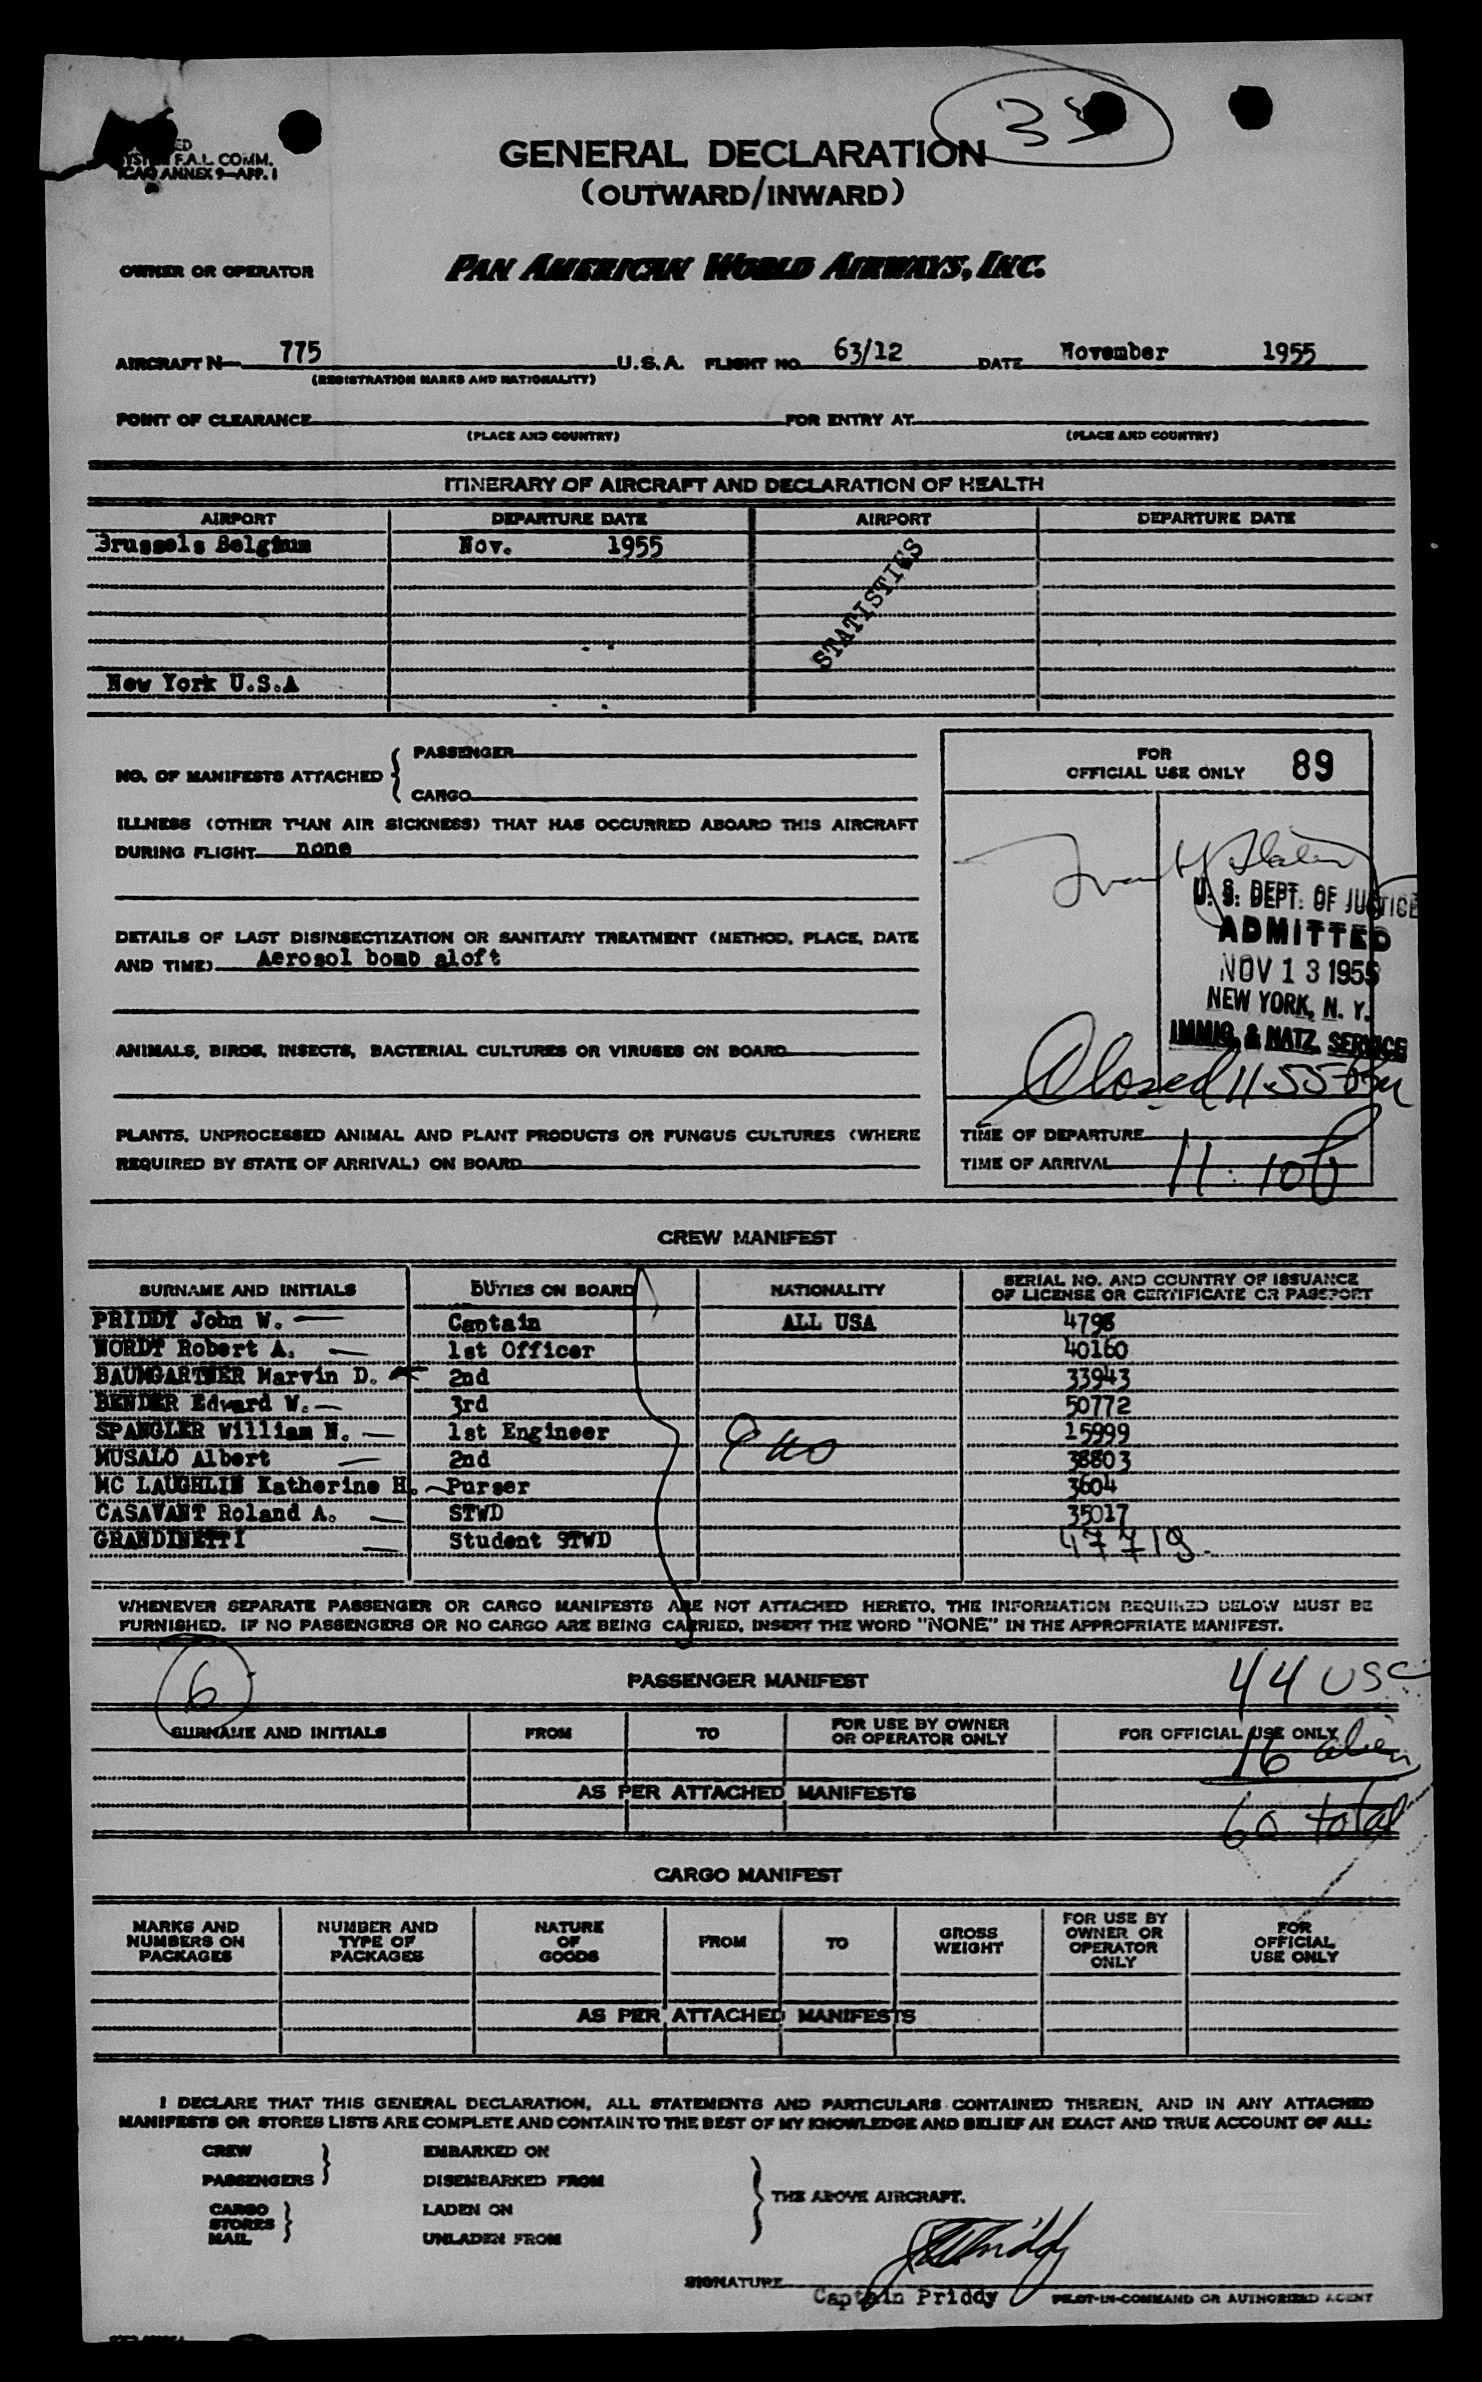 35
F.A.L. COMM.
ICAO ANNEX 9—APP. 1
GENERAL DECLARATION
(OUTWARD/INWARD)
OWNER OR OPERATOR PAN AMERICAN WORLD AIRWAYS, INC.
AIRCRAFT N— 775 U.S.A. FLIGHT NO. 63/12 DATE November 1955
(REGISTRATION MARKS AND NATIONALITY)
POINT OF CLEARANCE FOR ENTRY AT
(PLACE AND COUNTRY) (PLACE AND COUNTRY)
ITINERARY OF AIRCRAFT AND DECLARATION OF HEALTH
AIRPORT DEPARTURE DATE AIRPORT DEPARTURE DATE
Brussels Belgium Nov. 1955
STATISTICS
New York U.S.A
NO. OF MANIFESTS ATTACHED { PASSENGER
CARGO
FOR
OFFICIAL USE ONLY 89
ILLNESS (OTHER THAN AIR SICKNESS) THAT HAS OCCURRED ABOARD THIS AIRCRAFT
DURING FLIGHT none
U. S. DEPT. OF JUSTICE
ADMITTED
NOV 13 1955
NEW YORK, N. Y.
IMMIG. & NATZ. SERVICE
DETAILS OF LAST DISINSECTIZATION OR SANITARY TREATMENT (METHOD, PLACE, DATE
AND TIME) Aerosol bomb aloft
ANIMALS, BIRDS, INSECTS, BACTERIAL CULTURES OR VIRUSES ON BOARD
Closed 11.55 Pm
PLANTS, UNPROCESSED ANIMAL AND PLANT PRODUCTS OR FUNGUS CULTURES (WHERE
REQUIRED BY STATE OF ARRIVAL) ON BOARD
TIME OF DEPARTURE
TIME OF ARRIVAL 11:10 P
CREW MANIFEST
SURNAME AND INITIALS DUTIES ON BOARD NATIONALITY SERIAL NO. AND COUNTRY OF ISSUANCE
OF LICENSE OR CERTIFICATE OR PASSPORT
PRIDDY John W. — Captain ALL USA 4798
NORDT Robert A. — 1st Officer 40160
BAUMGARTNER Marvin D. 2nd 33943
BENDER Edward W. — 3rd 50772
SPANGLER William N. — 1st Engineer 15999
MUSALO Albert — 2nd 38803
MC LAUGHLIN Katherine H. Purser 3604
CASAVANT Roland A. — STWD 35017
GRANDINETTI — Student STWD 47719
WHENEVER SEPARATE PASSENGER OR CARGO MANIFESTS ARE NOT ATTACHED HERETO, THE INFORMATION REQUIRED BELOW MUST BE
FURNISHED. IF NO PASSENGERS OR NO CARGO ARE BEING CARRIED, INSERT THE WORD "NONE" IN THE APPROPRIATE MANIFEST.
6
PASSENGER MANIFEST
44 USC
SURNAME AND INITIALS FROM TO FOR USE BY OWNER
OR OPERATOR ONLY FOR OFFICIAL USE ONLY
16 alien
AS PER ATTACHED MANIFESTS
60 total
CARGO MANIFEST
MARKS AND
NUMBERS ON
PACKAGES NUMBER AND
TYPE OF
PACKAGES NATURE
OF
GOODS FROM TO GROSS
WEIGHT FOR USE BY
OWNER OR
OPERATOR
ONLY FOR
OFFICIAL
USE ONLY
AS PER ATTACHED MANIFESTS
I DECLARE THAT THIS GENERAL DECLARATION, ALL STATEMENTS AND PARTICULARS CONTAINED THEREIN, AND IN ANY ATTACHED
MANIFESTS OR STORES LISTS ARE COMPLETE AND CONTAIN TO THE BEST OF MY KNOWLEDGE AND BELIEF AN EXACT AND TRUE ACCOUNT OF ALL:
CREW EMBARKED ON
PASSENGERS DISEMBARKED FROM
THE ABOVE AIRCRAFT.
CARGO LADEN ON
STORES
MAIL UNLADEN FROM
SIGNATURE JW Priddy
Captain Priddy PILOT-IN-COMMAND OR AUTHORIZED AGENT